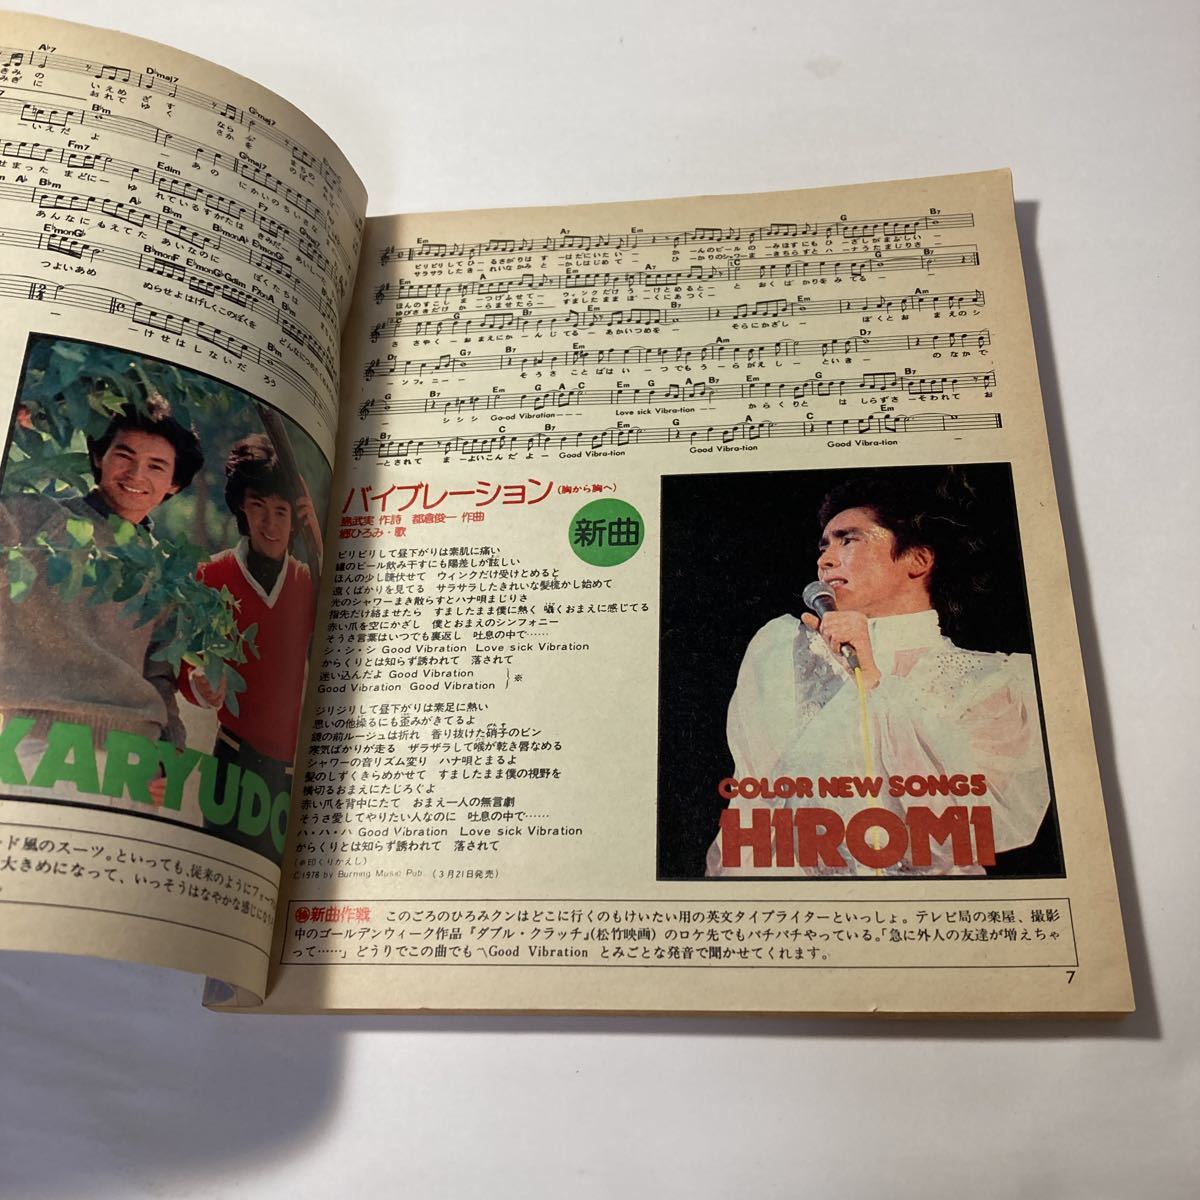 きみの いえめ ざす
みぎに おれて ゆく なら
さかを まちの
ーいえだ よ ーあの にかいのちいさな
せまった まどにー ゆ れているすがたは きみだー
あんなに もえてた あいなのに ぼくたちは
つよいあめ
ぬらせよはげしくこのぼくを
ー けせはしないだ ろう
KARYUDO
ード風のスーツ。といっても、従来のように
大きめになって、いっそうはなやかな感じに
ピリピリしてひーるさがりは すーはだにいたいー かーんのビールの ーみほすにも ひーざしがまぶしいー
サラサラしたきーれいなかみ とーかしはじめて ひーかりのシャワーま ーきちらすと ハーナうたまじりさー
ほんのすこし まーつげふせてー ウィンクだけ うーけとめるとー とーおくばかりを みてる
ゆびさきだけ かーらませたらー すましたままぼーくにあつくー
ささやくーおまえにかーんじてるーあかいつめをー そらにかざしー ぼくとおまえのシ
ーンフォニーー そうさ ことばはいーつでもうーらがえしー といきー のなかで
シシシ Go-od Vibration--- Love sick Vibra-tion--- からくりと はしらずさーそわれて お
ーとされて まーよいこんだよーGood Vibra-tion Good Vibra-tion Good Vibra-tion
バイブレーション(胸から胸へ)
島武実 作詩 都倉俊一 作曲
郷ひろみ・歌
新曲
ピリピリして昼下がりは素肌に痛い
罐のビール飲み干すにも陽差しが眩しい
ほんの少し睫伏せて ウィンクだけ受けとめると
遠くばかりを見てる サラサラしたきれいな髪梳かし始めて
光のシャワーまき散らすとハナ唄まじりさ
指先だけ絡ませたら すましたまま僕に熱く 囁くおまえに感じてる
赤い爪を空にかざし 僕とおまえのシンフォニー
そうさ言葉はいつでも裏返し 吐息の中で……
シ・シ・シ Good Vibration Love sick Vibration
からくりとは知らず誘われて 落されて
迷い込んだよ Good Vibration
Good Vibration Good Vibration ※
ジリジリして昼下がりは素足に熱い
思いの他操るにも歪みがきてるよ
鏡の前ルージュは折れ 香り抜けた硝子のビン
寒気ばかりが走る ザラザラして喉が乾き唇なめる
シャワーの音リズム変り ハナ唄とまるよ
髪のしずくきらめかせて すましたまま僕の視野を
横切るおまえにたじろぐよ
赤い爪を背中にたて おまえ一人の無言劇
そうさ愛してやりたい人なのに 吐息の中で……
ハ・ハ・ハ Good Vibration Love sick Vibration
からくりとは知らず誘われて 落されて
(※印くりかえし)
©1978 by Burning Music Pub. (3月21日発売)
COLOR NEW SONG5
HIROMI
㊙新曲作戦 このごろのひろみクンはどこに行くのもけいたい用の英文タイプライターといっしょ。テレビ局の楽屋、撮影
中のゴールデンウィーク作品『ダブル・クラッチ』(松竹映画)のロケ先でもパチパチやっている。「急に外人の友達が増えちゃ
って……」どうりでこの曲でも〽Good Vibration とみごとな発音で聞かせてくれます。
7